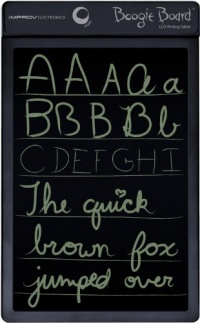 IMPROV ELECTRONICS
Boogie Board
LCD Writing Tablet
A A A A a
B B B B b
C D E F G H I
The quick
brown fox
jumped over